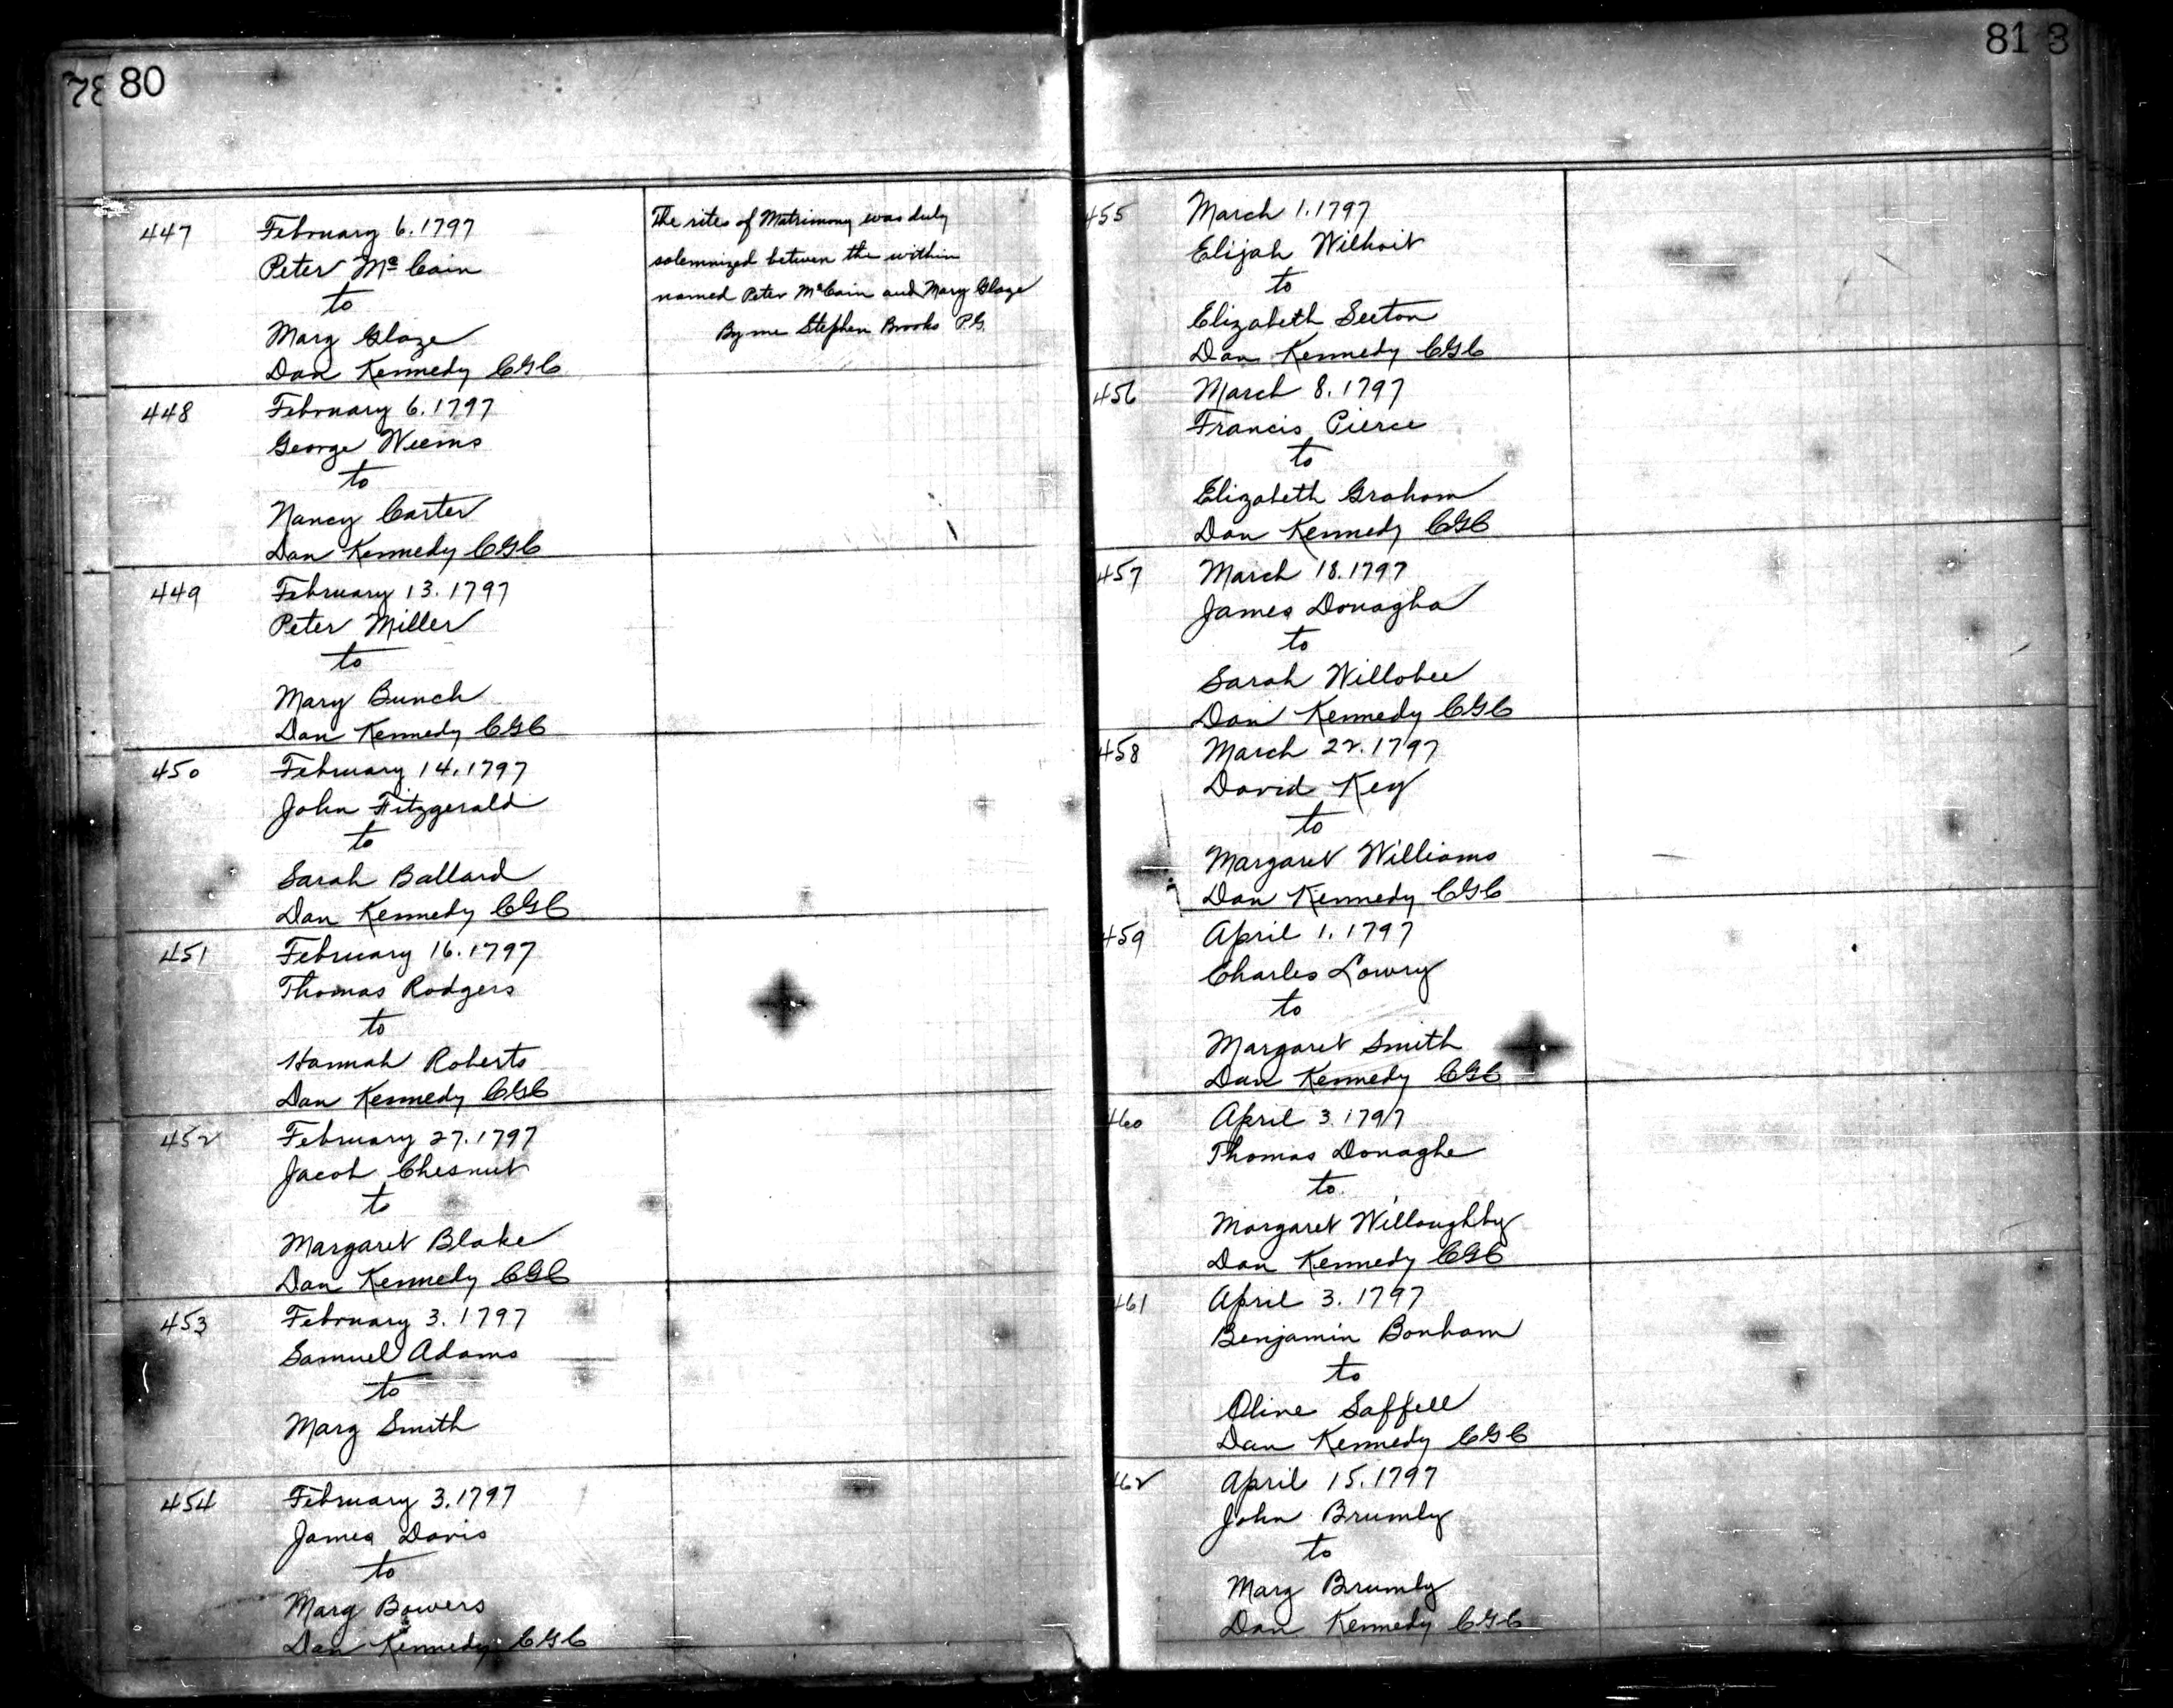 80
447
February 6. 1797
Peter McCain
to
Mary Glaze
Dan Kennedy CGC
The rites of Matrimony was duly
solemnized betwen the within
named Peter McCain and Mary Glaze
By me Stephen Brooks P.G.
448
February 6. 1797
George Weems
to
Nancy Carter
Dan Kennedy CGC
449
February 13. 1797
Peter Miller
to
Mary Bunch
Dan Kennedy CGC
450
February 14. 1797
John Fitzgerald
to
Sarah Ballard
Dan Kennedy CGC
451
February 16. 1797
Thomas Rodgers
to
Hannah Roberts
Dan Kennedy CGC
452
February 27. 1797
Jacob Chesnut
to
Margaret Blake
Dan Kennedy CGC
453
February 3. 1797
Samuel Adams
to
Mary Smith
454
February 3. 1797
James Davis
to
Mary Bowers
Dan Kennedy CGC
81
455
March 1. 1797
Elijah Wilhoit
to
Elizabeth Seeton
Dan Kennedy CGC
456
March 8. 1797
Francis Pierce
to
Elizabeth Graham
Dan Kennedy CGC
457
March 18. 1797
James Donagha
to
Sarah Willobee
Dan Kennedy CGC
458
March 22. 1797
David Key
to
Margaret Williams
Dan Kennedy CGC
459
April 1. 1797
Charles Lowry
to
Margaret Smith
Dan Kennedy CGC
460
April 3. 1797
Thomas Donaghe
to
Margaret Willoughby
Dan Kennedy CGC
461
April 3. 1797
Benjamin Bonham
to
Oline Saffell
Dan Kennedy CGC
462
April 15. 1797
John Brumly
to
Mary Brumly
Dan Kennedy CGC